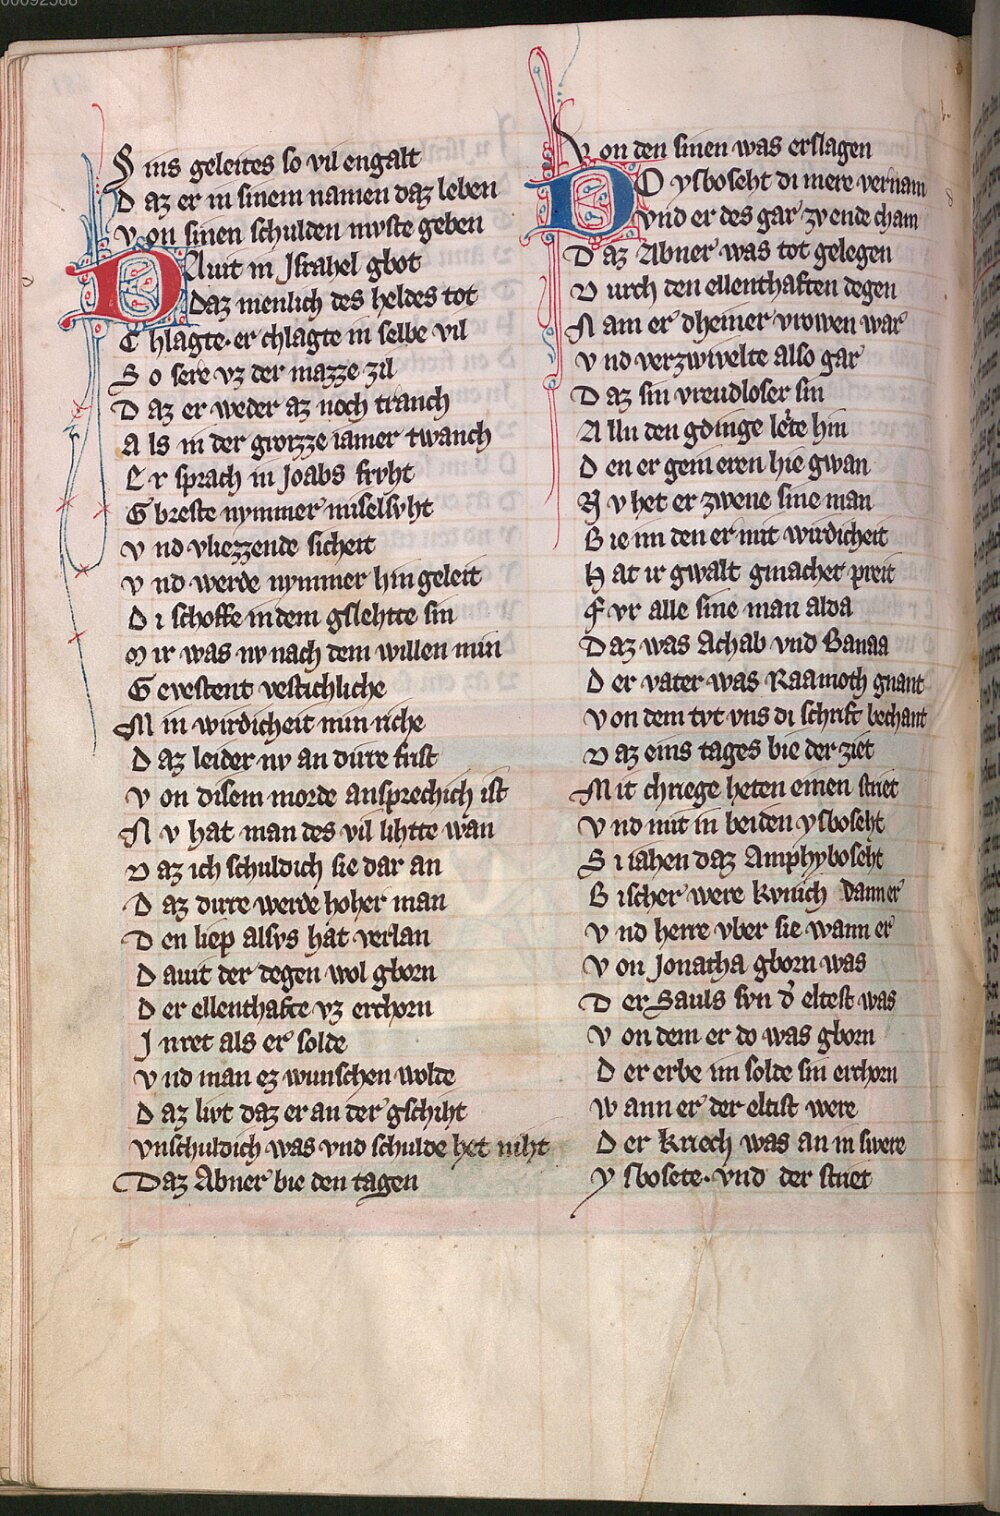 00092588
S ins geleites so vil engalt
D az er in sinem namen daz leben
v on sinen schulden mvste geben
DAuit in Jsrahel gbot
Daz menlich des heldes tot
C hlagte· er chlagte in selbe vil
S o sere vz der mazze zil
D az er weder az noch tranch
A ls in der grozze iamer twanch
E r sprach in Joabs frvht
G breste nymmer miselsvht
v nd vliezzende sicheit
v nd werde nymmer hin geleit
D i schoffe in dem gslehtte sin
M ir was nv nach dem willen min
G evestent vestichliche
M in wirdicheit min riche
D az leider nv an dirre frist
v on disem morde ansprechich ist
N v hat man des vil lihtte wan
D az ich schuldich sie dar an
D az dirre werde hoher man
D en liep alsvs hat verlan
D auit der degen wol gborn
D er ellenthafte vz erchorn
J nret als er solde
v nd man ez wunschen wolde
D az livt daz er an der gschiht
vnschuldich was vnd schulde het niht
Daz Abner bie den tagen
V on den sinen was erslagen
DO ysboseht di mere vernam
vnd er des gar zv ende cham
D az Abner was tot gelegen
D urch den ellenthaften degen
N am er dheiner vrowen war
v nd verzwivelte also gar
D az sin vreudloser sin
A llu den gdinge lete hin
D en er gein eren hie gwan
N v het er zwene sine man
B ie im den er mit wirdicheit
H at ir gwalt gmachet preit
F vr alle sine man alda
Daz was Achab vnd Banaa
D er vater was Raamoth gnant
v on dem tvt vns di schrift bechant
D az eins tages bie der ziet
M it chriege heten einen striet
v nd mit in beiden ysboseht
S i iahen daz Amphyboseht
B ischer were kvnich danner
v nd herre vber sie wann er
v on Jonatha gborn was
D er Sauls svn d' eltest was
v on dem er do was gborn
D er erbe im solde sin erchorn
W ann er der eltist were
D er kriech was an in swere
y sbosete· vnd der striet